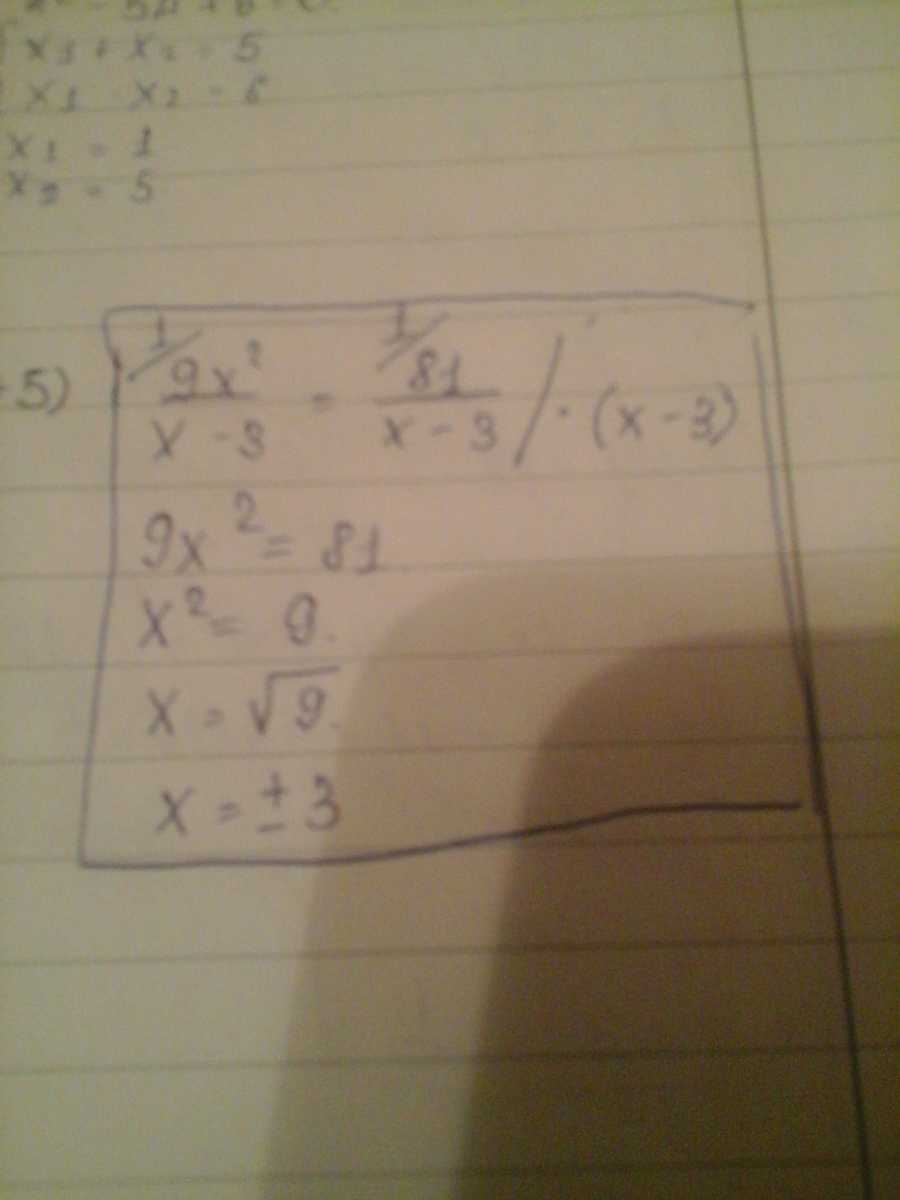 x₁ + x₂ = 5
x₁ x₂ = 6
x₁ = 1
x₂ = 5
5) 1/ 9x²/(x - 3) = 1/ 81/(x - 3) / · (x - 3)
9x² = 81
x² = 9.
x = √9.
x = ± 3